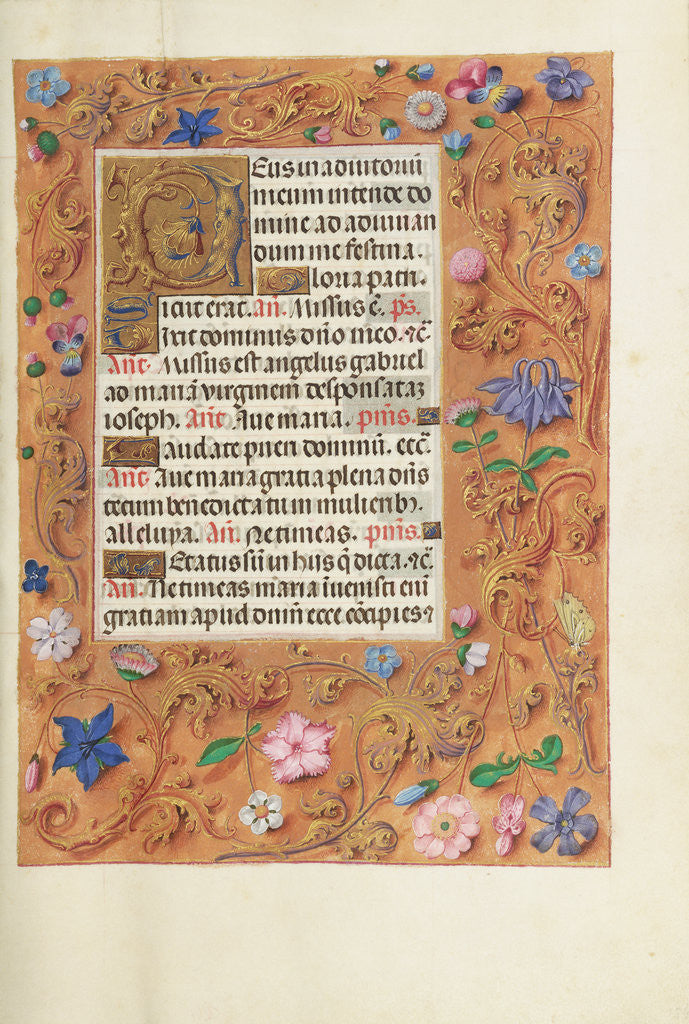 Deus in adiutoriū
meum intende do
mine ad adiuuan
dum me festina.
Gloria patri.
Sicut erat. Añ. Missus ē. p̄s.
Dixit dominus dn̄o meo. ⁊c̄.
Ant̄. Missus est angelus gabriel
ad mariā virginem desponsataꝫ
ioseph. Ant̄ Aue maria. psm̄s.
Laudate pueri dominū. etc̄.
Ant̄ Aue maria gratia plena dn̄s
tecum benedicta tu in mulieribꝫ.
alleluya. Añ. Ne timeas. psm̄s.
Letatus sū in hiis q̄ dicta. ⁊c̄.
Añ. Ne timeas maria īuenisti eni
gratiam apud dominū ecce cōcipies ⁊